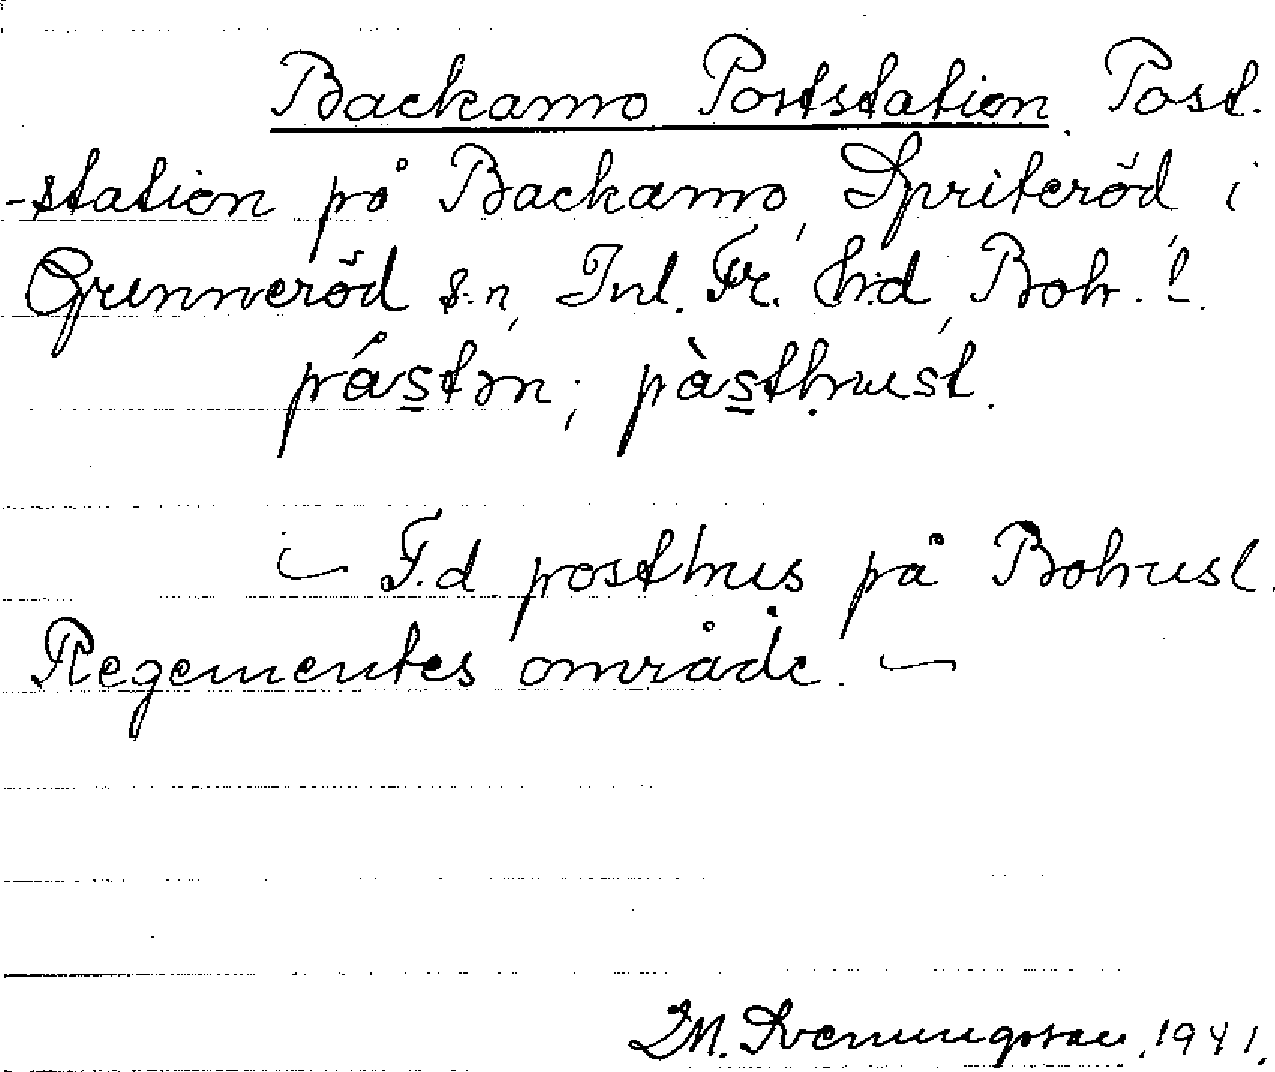 Backamo Poststation. Post.
-station på Backamo, Spriteröd i
Grinneröd s.n, Inl. Fr. h:d, Boh. l.
pástən; pàsthusl.
F.d posthus på Bohusl.
Regementes område.
J.M. Sveningsson, 1941.